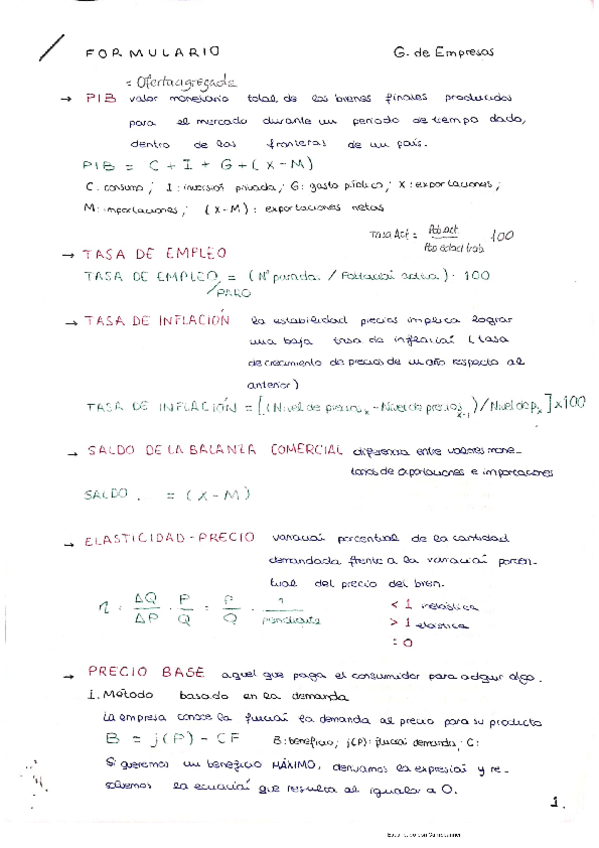 FORMULARIO G. de Empresas
= Oferta agregada
→ PIB valor monetario total de los bienes finales producidos
para el mercado durante un periodo de tiempo dado,
dentro de las fronteras de un país.
PIB = C + I + G + (X - M)
C: consumo; I: inversión privada; G: gasto público; X: exportaciones;
M: importaciones; (X - M): exportaciones netas
Tasa Act = Pob act / Pob edad trab. 100
→ TASA DE EMPLEO
TASA DE EMPLEO = (Nº parada / Población activa) · 100
/PARO
→ TASA DE INFLACIÓN la estabilidad precios implica lograr
una baja tasa de inflación (tasa
de crecimiento de precios de un año respecto al
anterior)
TASA DE INFLACIÓN = [(Nivel de precios x - Nivel de precios x-1) / Nivel de p x] x 100
→ SALDO DE LA BALANZA COMERCIAL diferencia entre valores mone-
tarios de exportaciones e importaciones
SALDO = (X - M)
→ ELASTICIDAD - PRECIO variación porcentual de la cantidad
demandada frente a la variación porcen-
tual del precio del bien.
η = ΔQ/ΔP · P/Q = P/Q · 1/pendiente
< 1 inelástica
> 1 elástica
= 0
→ PRECIO BASE aquel que paga el consumidor para adquirir algo.
1. Método basado en la demanda
La empresa conoce la función la demanda al precio para su producto
B = j(P) - CF B: beneficio; j(P): función demanda; C:
Si queremos un beneficio MÁXIMO, derivamos la expresión y re-
solvemos la ecuación que resulta al igualar a 0.
1.